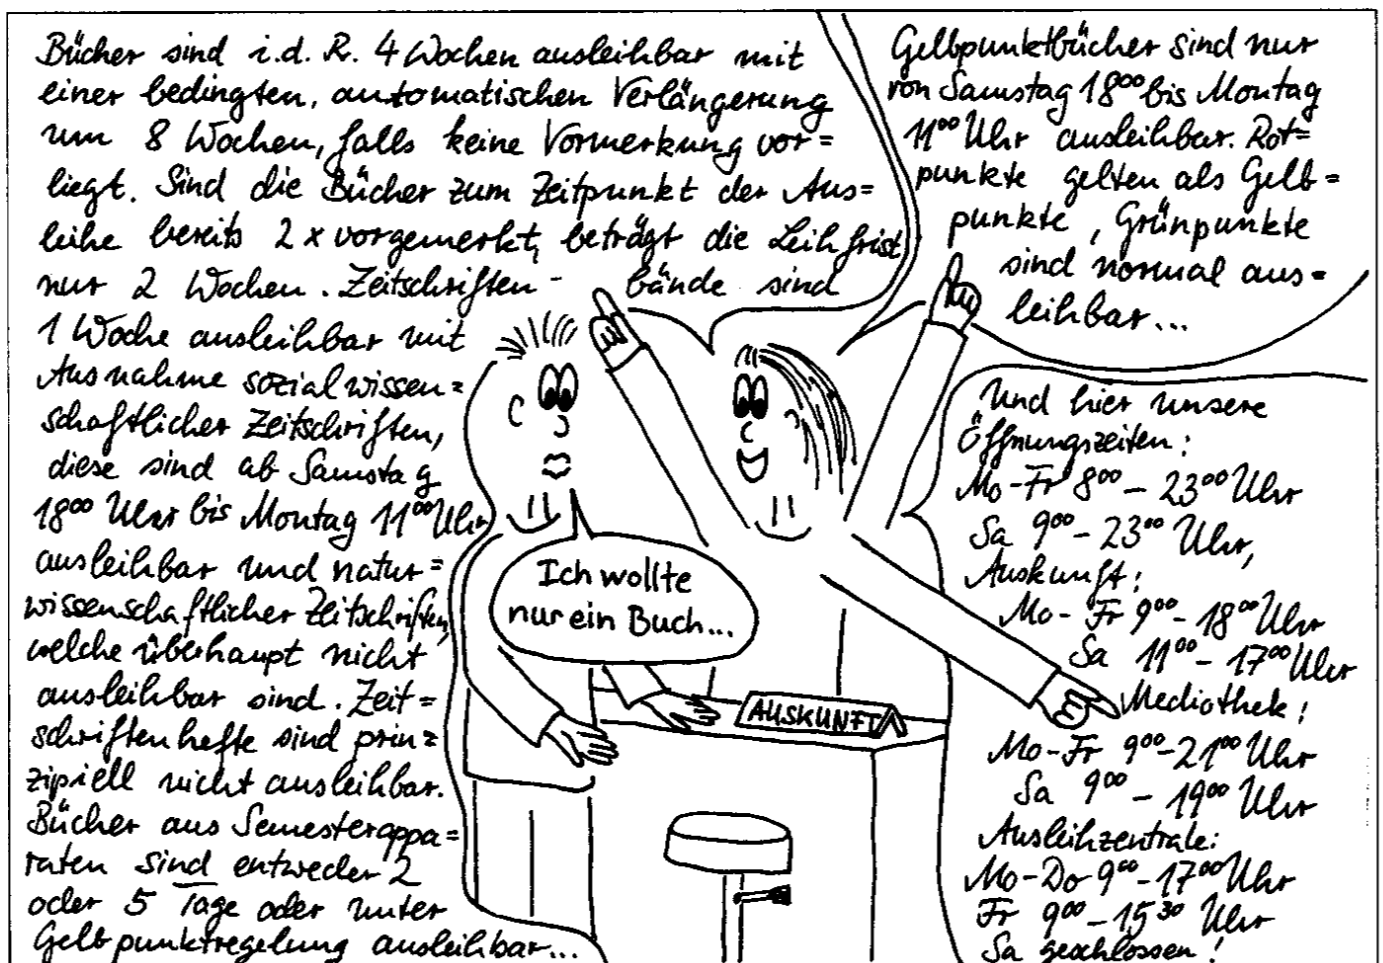 Bücher sind i.d.R. 4 Wochen ausleihbar mit
einer bedingten, automatischen Verlängerung
um 8 Wochen, falls keine Vormerkung vor=
liegt. Sind die Bücher zum Zeitpunkt der Aus=
leihe bereits 2 x vorgemerkt, beträgt die Leihfrist
nur 2 Wochen. Zeitschriften- bände sind
1 Woche ausleihbar mit
Ausnahme sozialwissen=
schaftlicher Zeitschriften,
diese sind ab Samstag
18⁰⁰ Uhr bis Montag 11⁰⁰ Uhr
ausleihbar und natur=
wissenschaftlicher Zeitschriften,
welche überhaupt nicht
ausleihbar sind. Zeit=
schriftenhefte sind prin=
zipiell nicht ausleihbar.
Bücher aus Semesterappa=
raten sind entweder 2
oder 5 Tage oder unter
Gelbpunktregelung ausleihbar...
Gelbpunktbücher sind nur
von Samstag 18⁰⁰ bis Montag
11⁰⁰ Uhr ausleihbar. Rot=
punkte gelten als Gelb=
punkte, Grünpunkte
sind normal aus=
leihbar...
Und hier unsere
Öffnungszeiten:
Mo-Fr 8⁰⁰ – 23⁰⁰ Uhr
Sa 9⁰⁰ – 23⁰⁰ Uhr,
Auskunft:
Mo-Fr 9⁰⁰ – 18⁰⁰ Uhr
Sa 11⁰⁰ – 17⁰⁰ Uhr
Mediothek:
Mo-Fr 9⁰⁰ – 21⁰⁰ Uhr
Sa 9⁰⁰ – 19⁰⁰ Uhr
Ausleihzentrale:
Mo-Do 9⁰⁰ – 17⁰⁰ Uhr
Fr 9⁰⁰ – 15³⁰ Uhr
Sa geschlossen!
Ich wollte
nur ein Buch...
AUSKUNFT